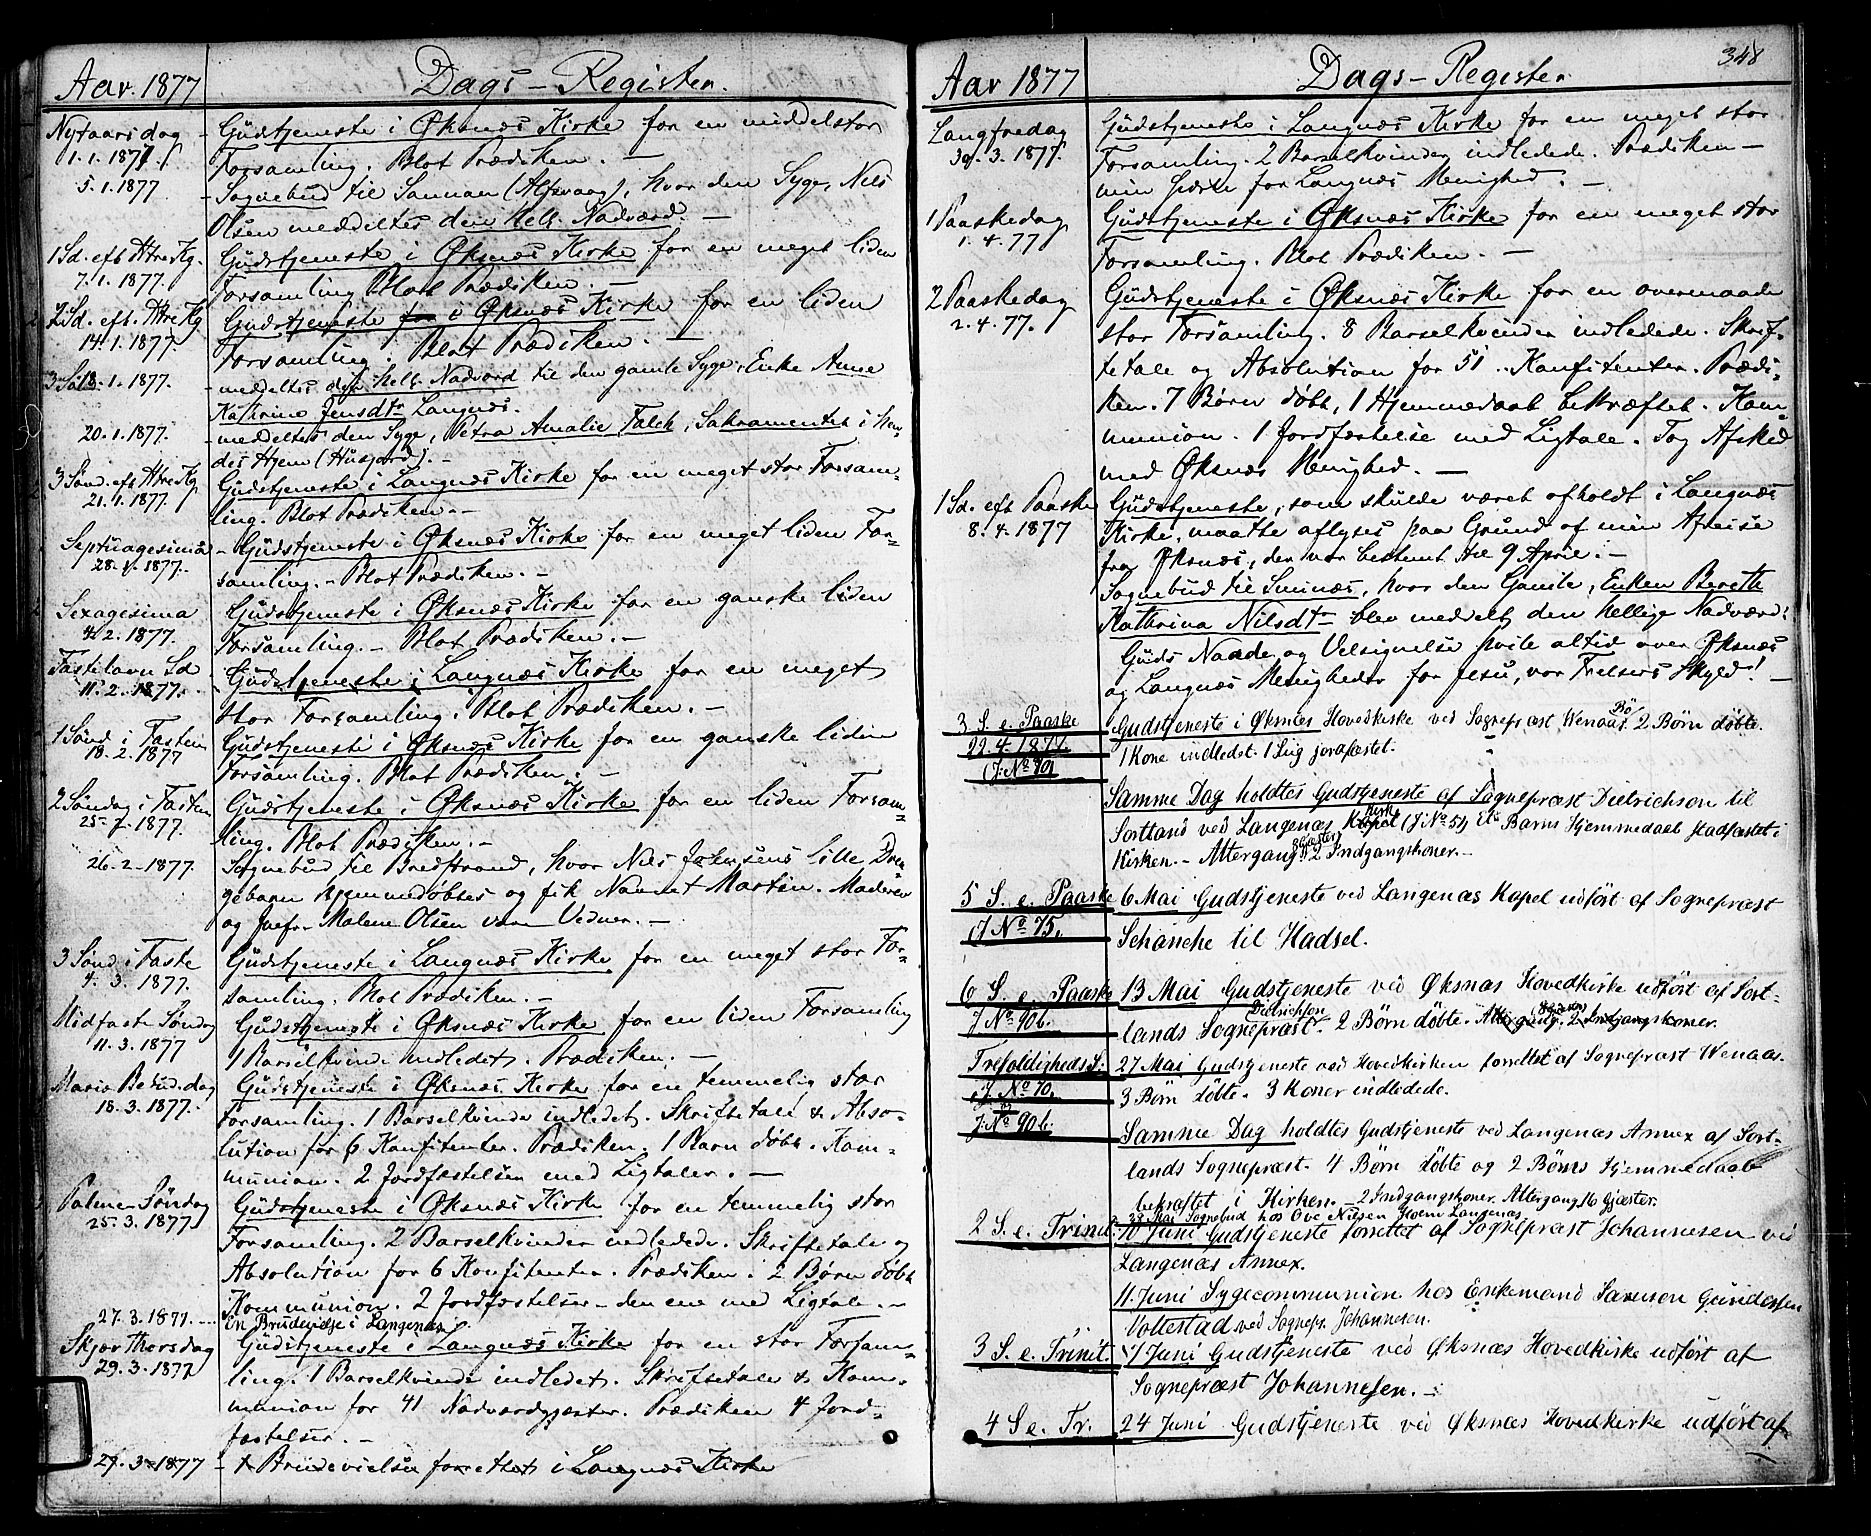 Aar. 1877
Dags-Register.
Nytaarsdag - Gudstjeneste i Øksnæs Kirke for en middelstor
1.1.1877 Forsamling. Blot Prædiken. —
5.1.1877 - Sognebud til (Alfsvaag), hvor den Syge, Nils
Olsen meddeltes den hell. Nadverd. —
1 Sd. eft. Htre Kg. Gudstjeneste i Øksnæs Kirke for en meget liden
7.1.1877. Forsamling. Blot Prædiken. —
2 Sd. eft. Htre Kg Gudstjeneste for i Øksnæs Kirke for en liden
14.1.1877. Forsamling. Blot Prædiken. —
18.1.1877. - meddeltes den hell. Nadvord til den gamle Syge, Enke Anne
Kathrine Jensdtr Langnæs.
20.1.1877. - meddeltes den Syge, Petra Amalie Falch, Sakramentet i hen-
des Hjem (Husjord). -
3 Sønd. eft Htre Kg Gudstjeneste i Langnæs Kirke for en meget stor Forsam-
21.1.1877. ling. Blot Prædiken. —
Septuagesima - Gudstjeneste i Øksnæs Kirke for en meget liden For-
28.1.1877. samling. - Blot Prædiken. —
Sexagesima Gudstjeneste i Øksnæs Kirke for en ganske liden
4.2.1877. Forsamling. - Blot Prædiken. —
Fastelavn Sd - Gudstjeneste i Langnæs Kirke for en meget
11.2.1877. stor Forsamling. Blot Prædiken. —
1 Sønd i Fasten Gudstjeneste i Øksnæs Kirke for en ganske liden
18.2.1877 Forsamling. Blot Prædiken. —
2 Søndag i Fasten Gudstjeneste i Øksnæs Kirke for en liden Forsam-
25.2.1877. ling. Blot Prædiken. —
26-2-1877. Sognebud til Breidstrand, hvor Nils lille Dren-
gebarn hjemmedøbtes og fik Navnet Martin. Moderen
og Jomfr. Malene Olsen vare Vidner. —
3 Sønd i Faste Gudstjeneste i Langnæs Kirke for en meget stor For-
4.3.1877. samling. Blot Prædiken. —
Midfaste Søndag Gudstjeneste i Øksnæs Kirke for en liden Forsamling
11.3.1877 1 Barselkvinde indledet. Prædiken. —
Mariæ Bebud. dag Gudstjeneste i Øksnæs Kirke for en temmelig stor
18.3.1877. Forsamling. 1 Barselkvinde indledet. Skriftetale & Abso-
lution for 6 Konfitenter. Prædiken. 1 Barn døbt. Kom-
munion. 2 Jordfæstelser med Ligtaler. —
Palme Søndag Gudstjeneste i Øksnæs Kirke for en temmelig stor
25.3.1877 Forsamling. 2 Barselkvinder indledede. Skriftetale og
Absolution for 6 Konfitenter. Prædiken. 2 Børn døbt
Kommunion. 2 Jordfæstelser - den ene med Ligtale. —
27.3.1877. En Brudevielse i Langenæs
Skjær Thorsdag Gudstjeneste i Langnæs Kirke for en stor Forsam-
29.3.1877 ling. 1 Barselkvinde indledet. Skriftetale & Kom-
munion for 41 Nadverdgjæster. Prædiken 4 Jord-
fæstelser. —
27.3-1877 - 1 Brudevielse forrettet i Langnæs Kirke
348
Aar 1877
Dags-Register
Langfredag Gudstjeneste i Langnæs Kirke for en meget stor
30.3.1877. Forsamling. 2 Barselkvinder indledede. Prædiken —
min sidste for Langnæs Menighed. —
1 Paaskedag Gudstjeneste i Øksnæs Kirke for en meget stor
1.4.77 Forsamling. Blot Prædiken. —
2 Paaskedag Gudstjeneste i Øksnæs Kirke for en overmaade
2.4.77. stor Forsamling. 8 Barselkvinder indledede. Skrif-
tetale og Absolution for 51 Konfitenter. Prædi-
ken. 7 Børn døbt, 1 Hjemmedaab bekræftet. Kom-
munion. 1 Jordfæstelse med Ligtale. Tog Afsked
med Øksnæs Menighed. —
1 Sd. eft Paaske Gudstjeneste, som skulde været afholdt i Langnæs
8.4.1877 Kirke, maatte aflyses paa Grund af min Afreise
fra Øksnæs, der var bestemt til 9 April. —
Sognebud til Smines, hvor den Gamle, Enken Berethe
Kathrina Nilsdtr blev meddelt den hellige Nadverd.
Guds Naade og Velsignelse hvile altid over Øksnæs
og Langnæs Menigheder for Jesu, vor Frelsers Skyld! —
3 S. e. Paaske Gudstjeneste i Øksnæs Hovedkirke ved Sognepræst Wenaas. Bö 2 Børn døbte.
22.4.1877. 1 Kone indledet. 1 Liig jordfæstet.
(J. No 70)
Samme Dag holdtes Gudstjeneste af Sognepræst Dietrichson til
Sortland ved Langenæs Kapel Kirk (J No 51) Et Barns Hjemmedaab stadfæstet i
Kirken. - Altergang 2 Indgangskoner. —
5 S. e. Paaske 6 Mai Gudstjeneste ved Langenæs Kapel udført af Sognepræst
(J No 75. Schanche til Hadsel.
6 S. e. Paaske 13 Mai Gudstjeneste ved Øksnæs Hovedkirke udført af Sort-
J. No 906. lands Sognepræst Dietrichson. 2 Børn døbte. Altergang. 2 Indgangskoner.
Trefoldigheds S: 27 Mai Gudstjeneste ved Hovedkirken forrettet af Sognepræst Wenaas.
J. No 70. 3 Børn døbte. 3 Koner indledede.
J: No 906. Samme Dag holdtes Gudstjeneste ved Langenæs Annex af Sort-
lands Sognepræst. 4 Børn døbte og 2 Børns Hjemmedaab
bekræftet i Kirken. - 2 Indgangskoner. Altergang 16 Gjæster.
28 Mai Sognebud hos Ove Nilsen Langenæs
2 S. e. Trinit. 10 Juni Gudstjeneste forrettet af Sognepræst Johannesen ved
Langenæs Annex.
11. Juni Sygecommunion hos Enkemand
ved Sognepr. Johannesen.
3 S. e. Trinit. 17 Juni Gudstjeneste ved Øksnæs Hovedkirke udført af
Sognepræst Johannesen. —
4 S. e. Tr. 24 Juni Gudstjeneste ved Øksnæs Hovedkirke udført af